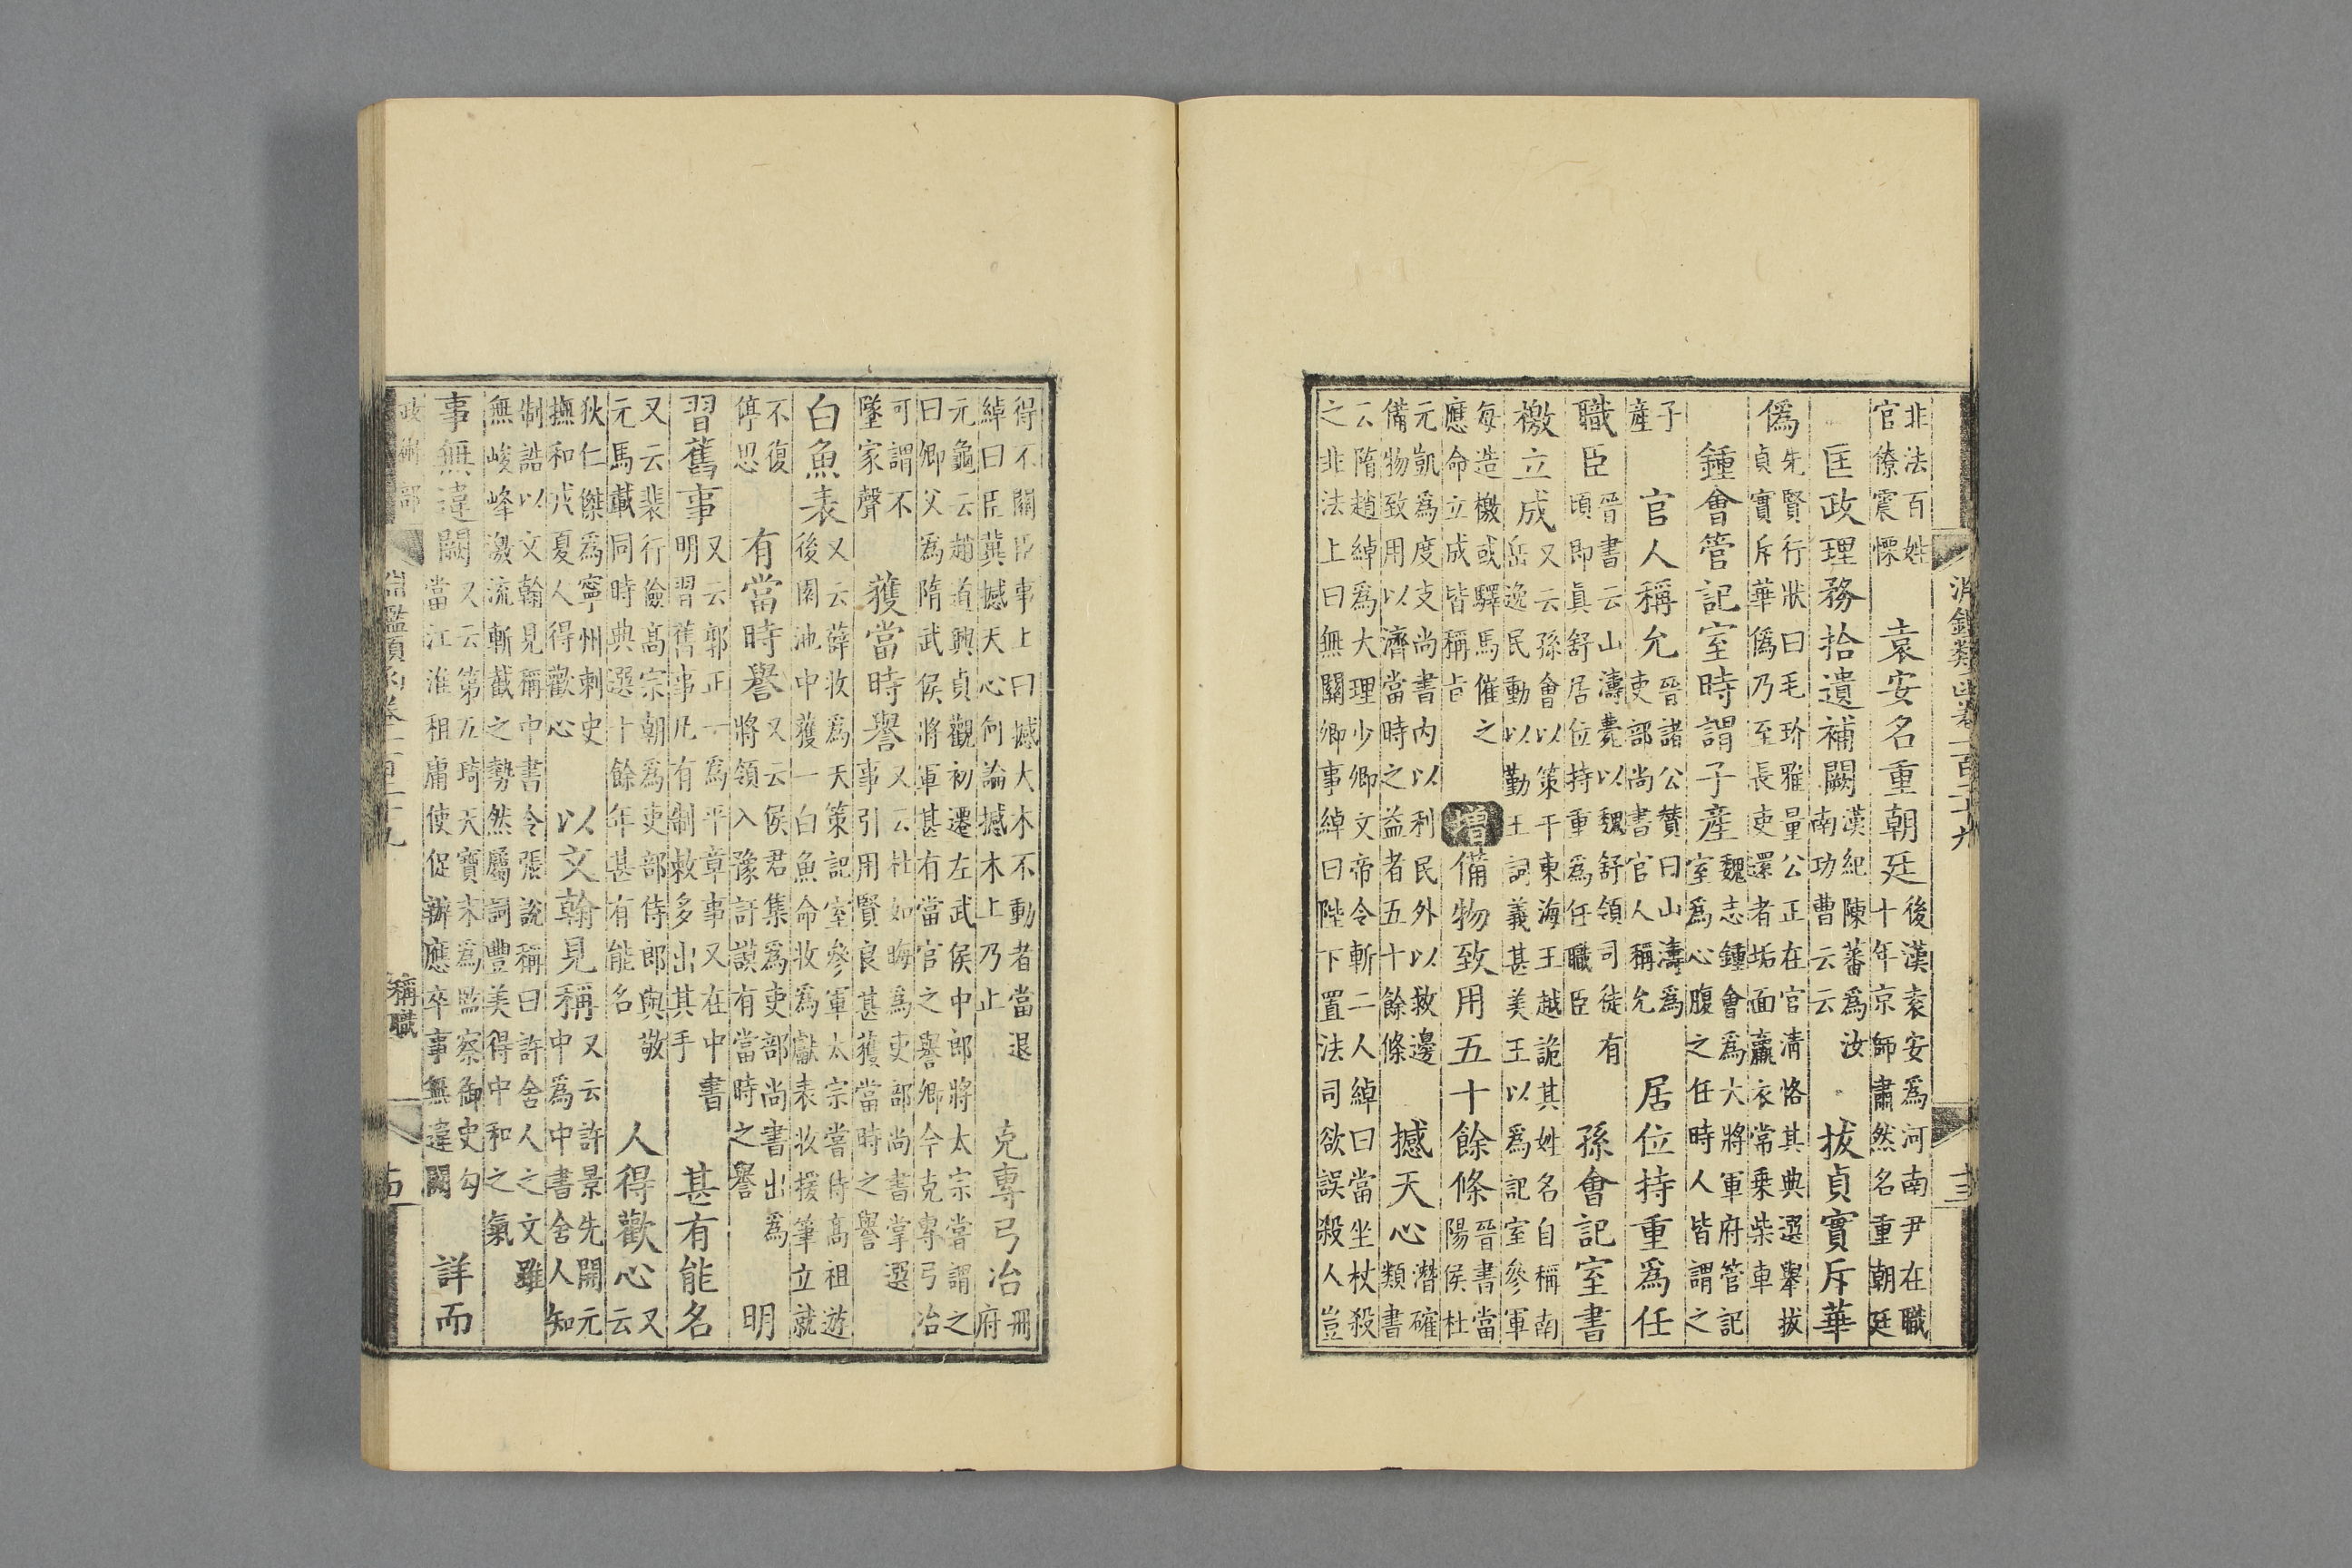 淵鑑類函卷一百二十九 十三
非法百姓官僚震慄 袁安名重朝廷 後漢袁安爲河南尹在職十年京師肅然名重朝廷
匡政理務 拾遺補闕 漢紀陳蕃爲汝南功曹云云 拔貞實斥華
僞 先賢行狀曰毛玠雅量公正在官清恪其典選舉拔貞實斥華僞乃至長吏還者垢面羸衣常乗柴車
鍾會管記室時謂子產 魏志鍾會爲大將軍府管記室爲心腹之任時人皆謂之
子產 官人稱允 晉諸公贊曰山濤爲吏部尚書官人稱允 居位持重爲任
職臣 晉書云山濤薨以魏舒領司徒有頃即眞舒居位持重爲任職臣 孫會記室書
檄立成 又云孫會以策干東海王越詭其姓名自稱南岳逸民動以勤王詞義甚美王以爲記室參軍
每造檄或驛馬催之應命立成皆稱旨 增 備物致用五十餘條 晉書當陽侯杜
元凱爲度支尚書内以利民外以救邊備物致用以濟當時之益者五十餘條 撼天心 潛確類書
云隋趙綽爲大理少卿文帝令斬二人綽曰當坐杖殺之非法上曰無關卿事綽曰陛下置法司欲誤殺人豈
得不關臣事上曰撼大木不動者當退綽曰臣冀撼天心何論撼木上乃止 克專弓冶 冊府
元龜云趙道興貞觀初遷左武侯中郎將太宗嘗謂之曰卿父爲隋武候將軍甚有當官之譽卿今克專弓冶
可謂不墜家聲 獲當時譽 又云杜如晦爲吏部尚書掌選事引用賢良甚獲當時之譽
白魚表 又云薛收爲天策記室參軍太宗嘗侍高祖遊後園池中獲一白魚命收爲獻表收援筆立就
不復停思 有當時譽 又云侯君集爲吏部尚書出爲將領入豫訏謨有當時之譽 明
習舊事 又云郭正一爲平章事又在中書明習舊事凡有制敕多出其手 甚有能名
又云裴行儉高宗朝爲吏部侍郎與敬元馬載同時典選十餘年甚有能名 人得歡心 又云
狄仁傑爲寧州刺史撫和戎夏人得歡心 以文翰見稱 又云許景先開元中爲中書舍人知
制誥以文翰見稱中書令張說稱曰許舍人之文雖無峻峰激流嶄截之勢然屬詞豐美得中和之氣
事無違闕 又云第五琦天寶末爲監察御史勾當江淮租庸使促辦應卒事無違闕 詳而
政術部 淵鑑類函卷一百二十九 稱職